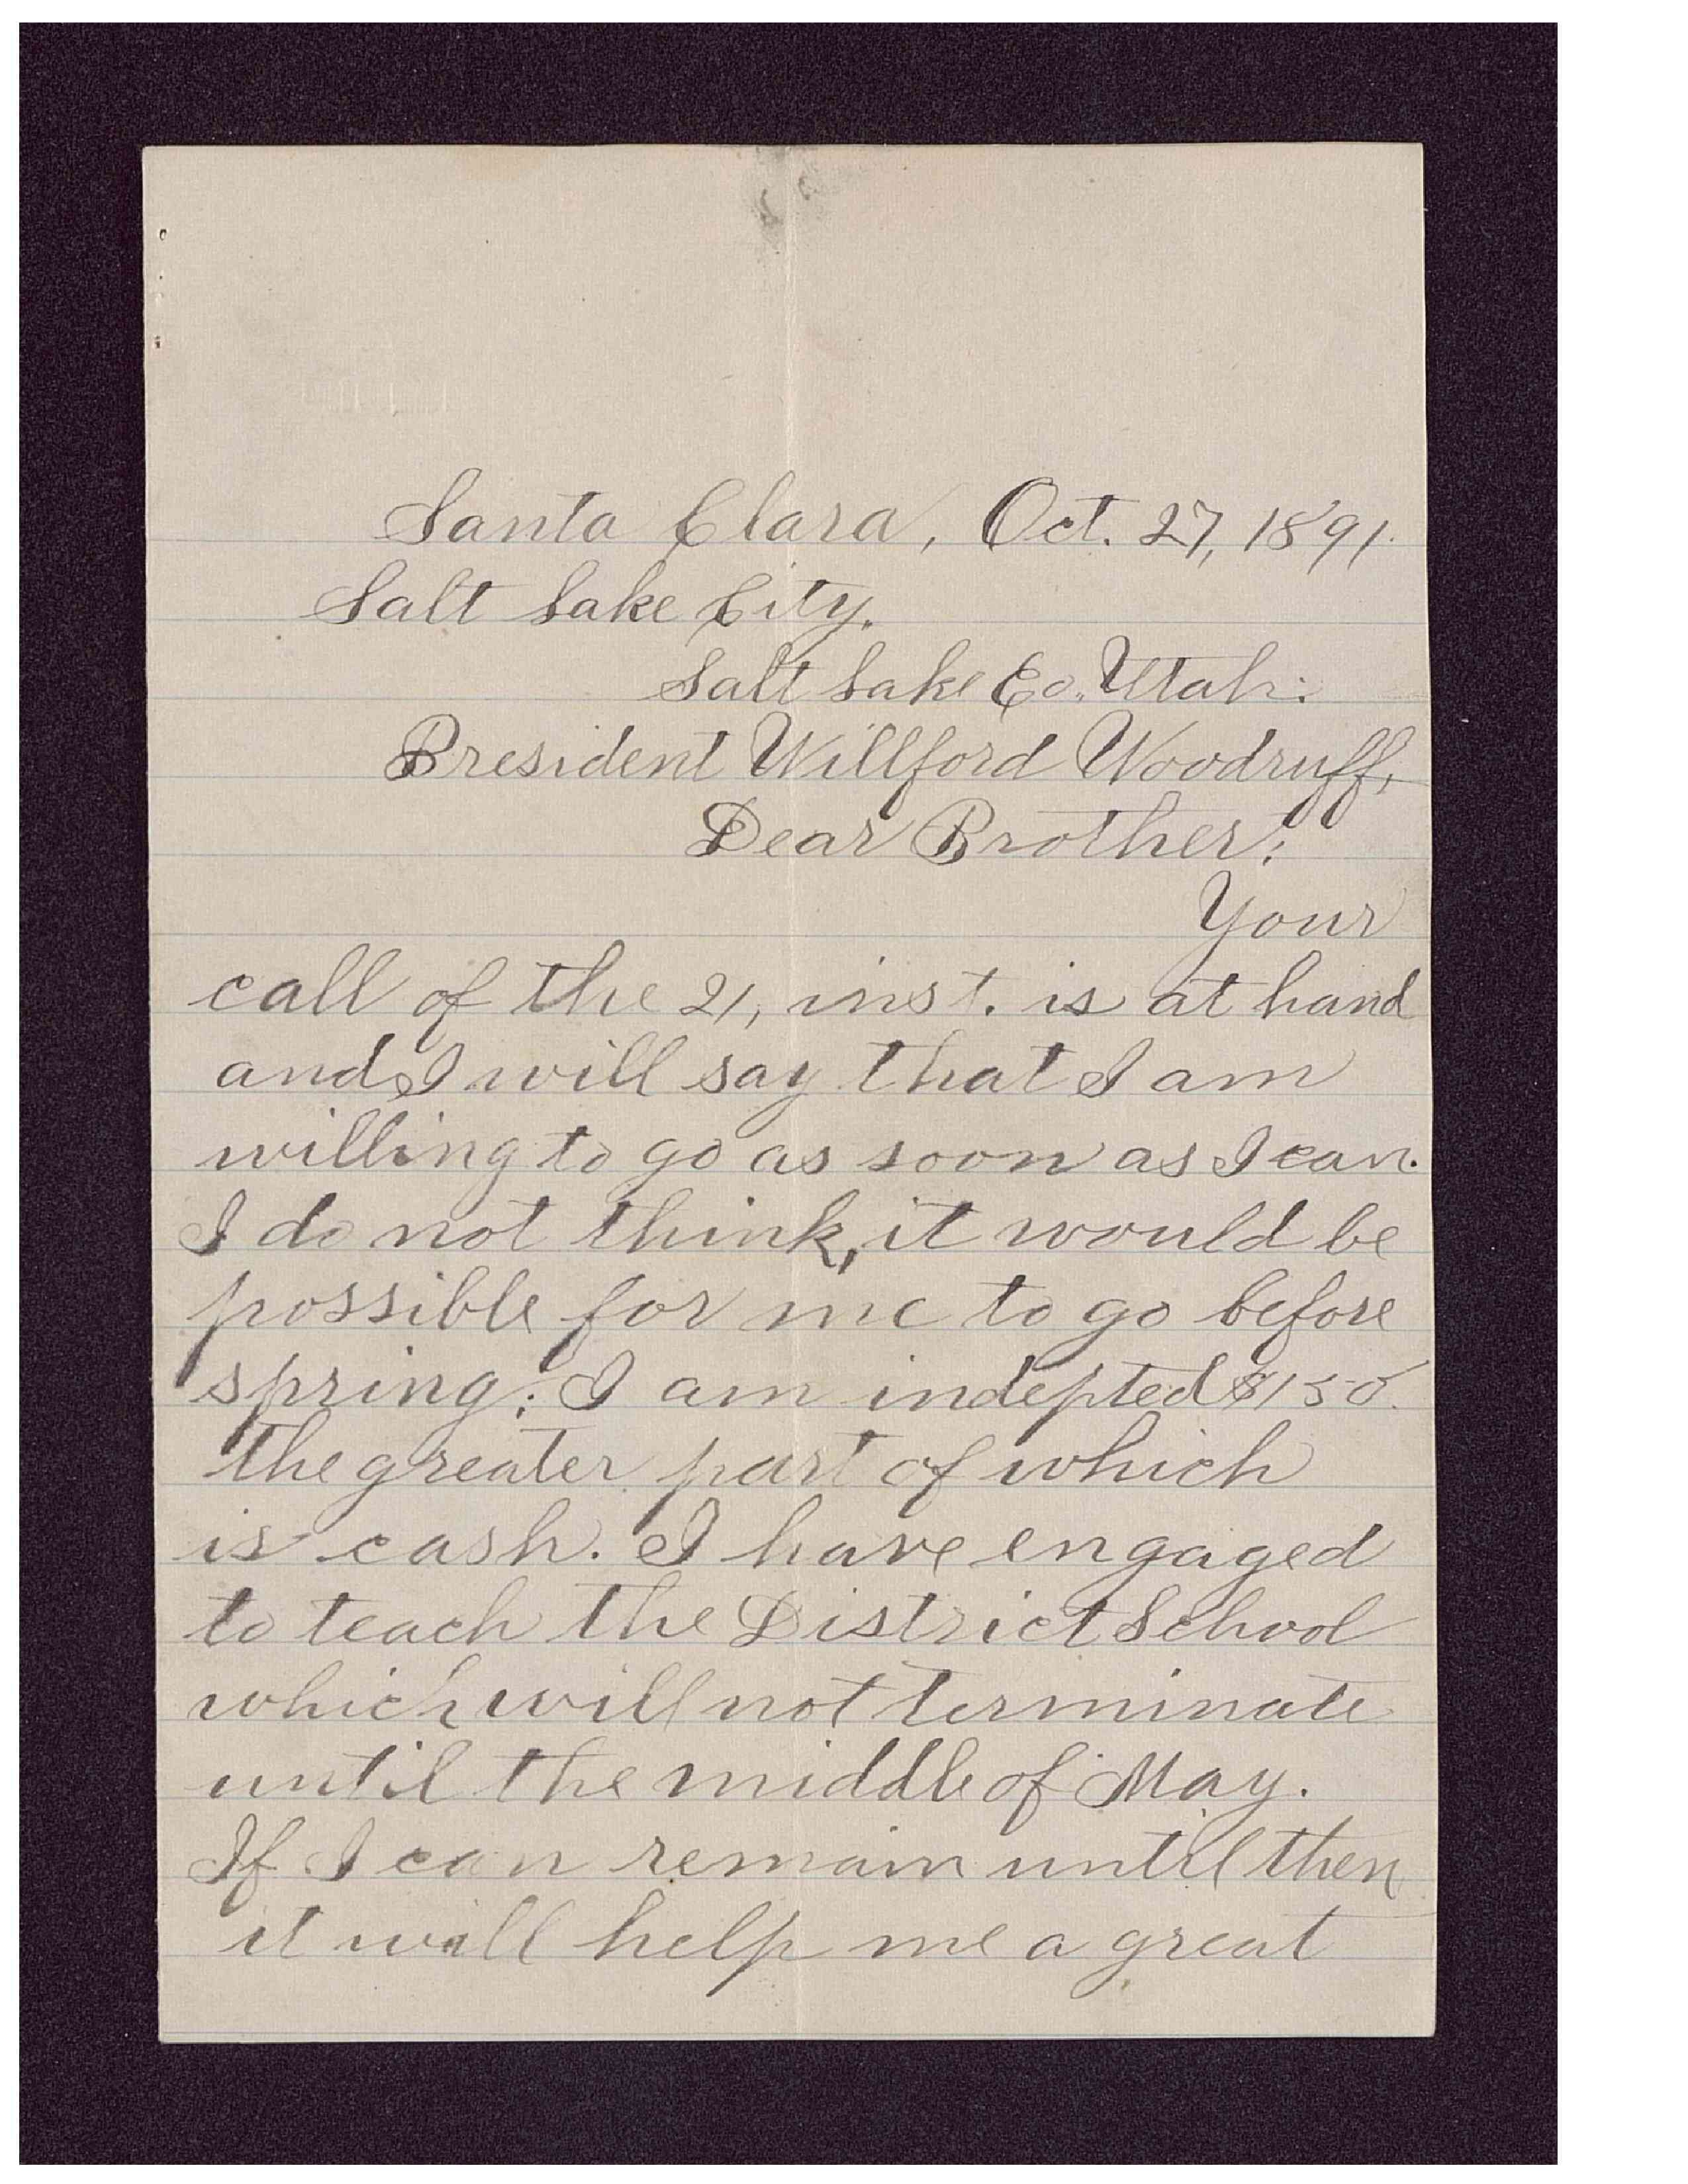 Santa Clara, Oct. 27, 1891.
Salt Lake City.
Salt Lake Co. Utah:
President Willford Woodruff,
Dear Brother:
Your
call of the 21, inst. is at hand
and I will say that I am
willing to go as soon as I can.
I do not think, it would be
possible for me to go before
spring: I am indepted $150.
the greater part of which
is cash. I have engaged
to teach the District School
which will not terminate
until the middle of May.
If I can remain until then
it will help me a great